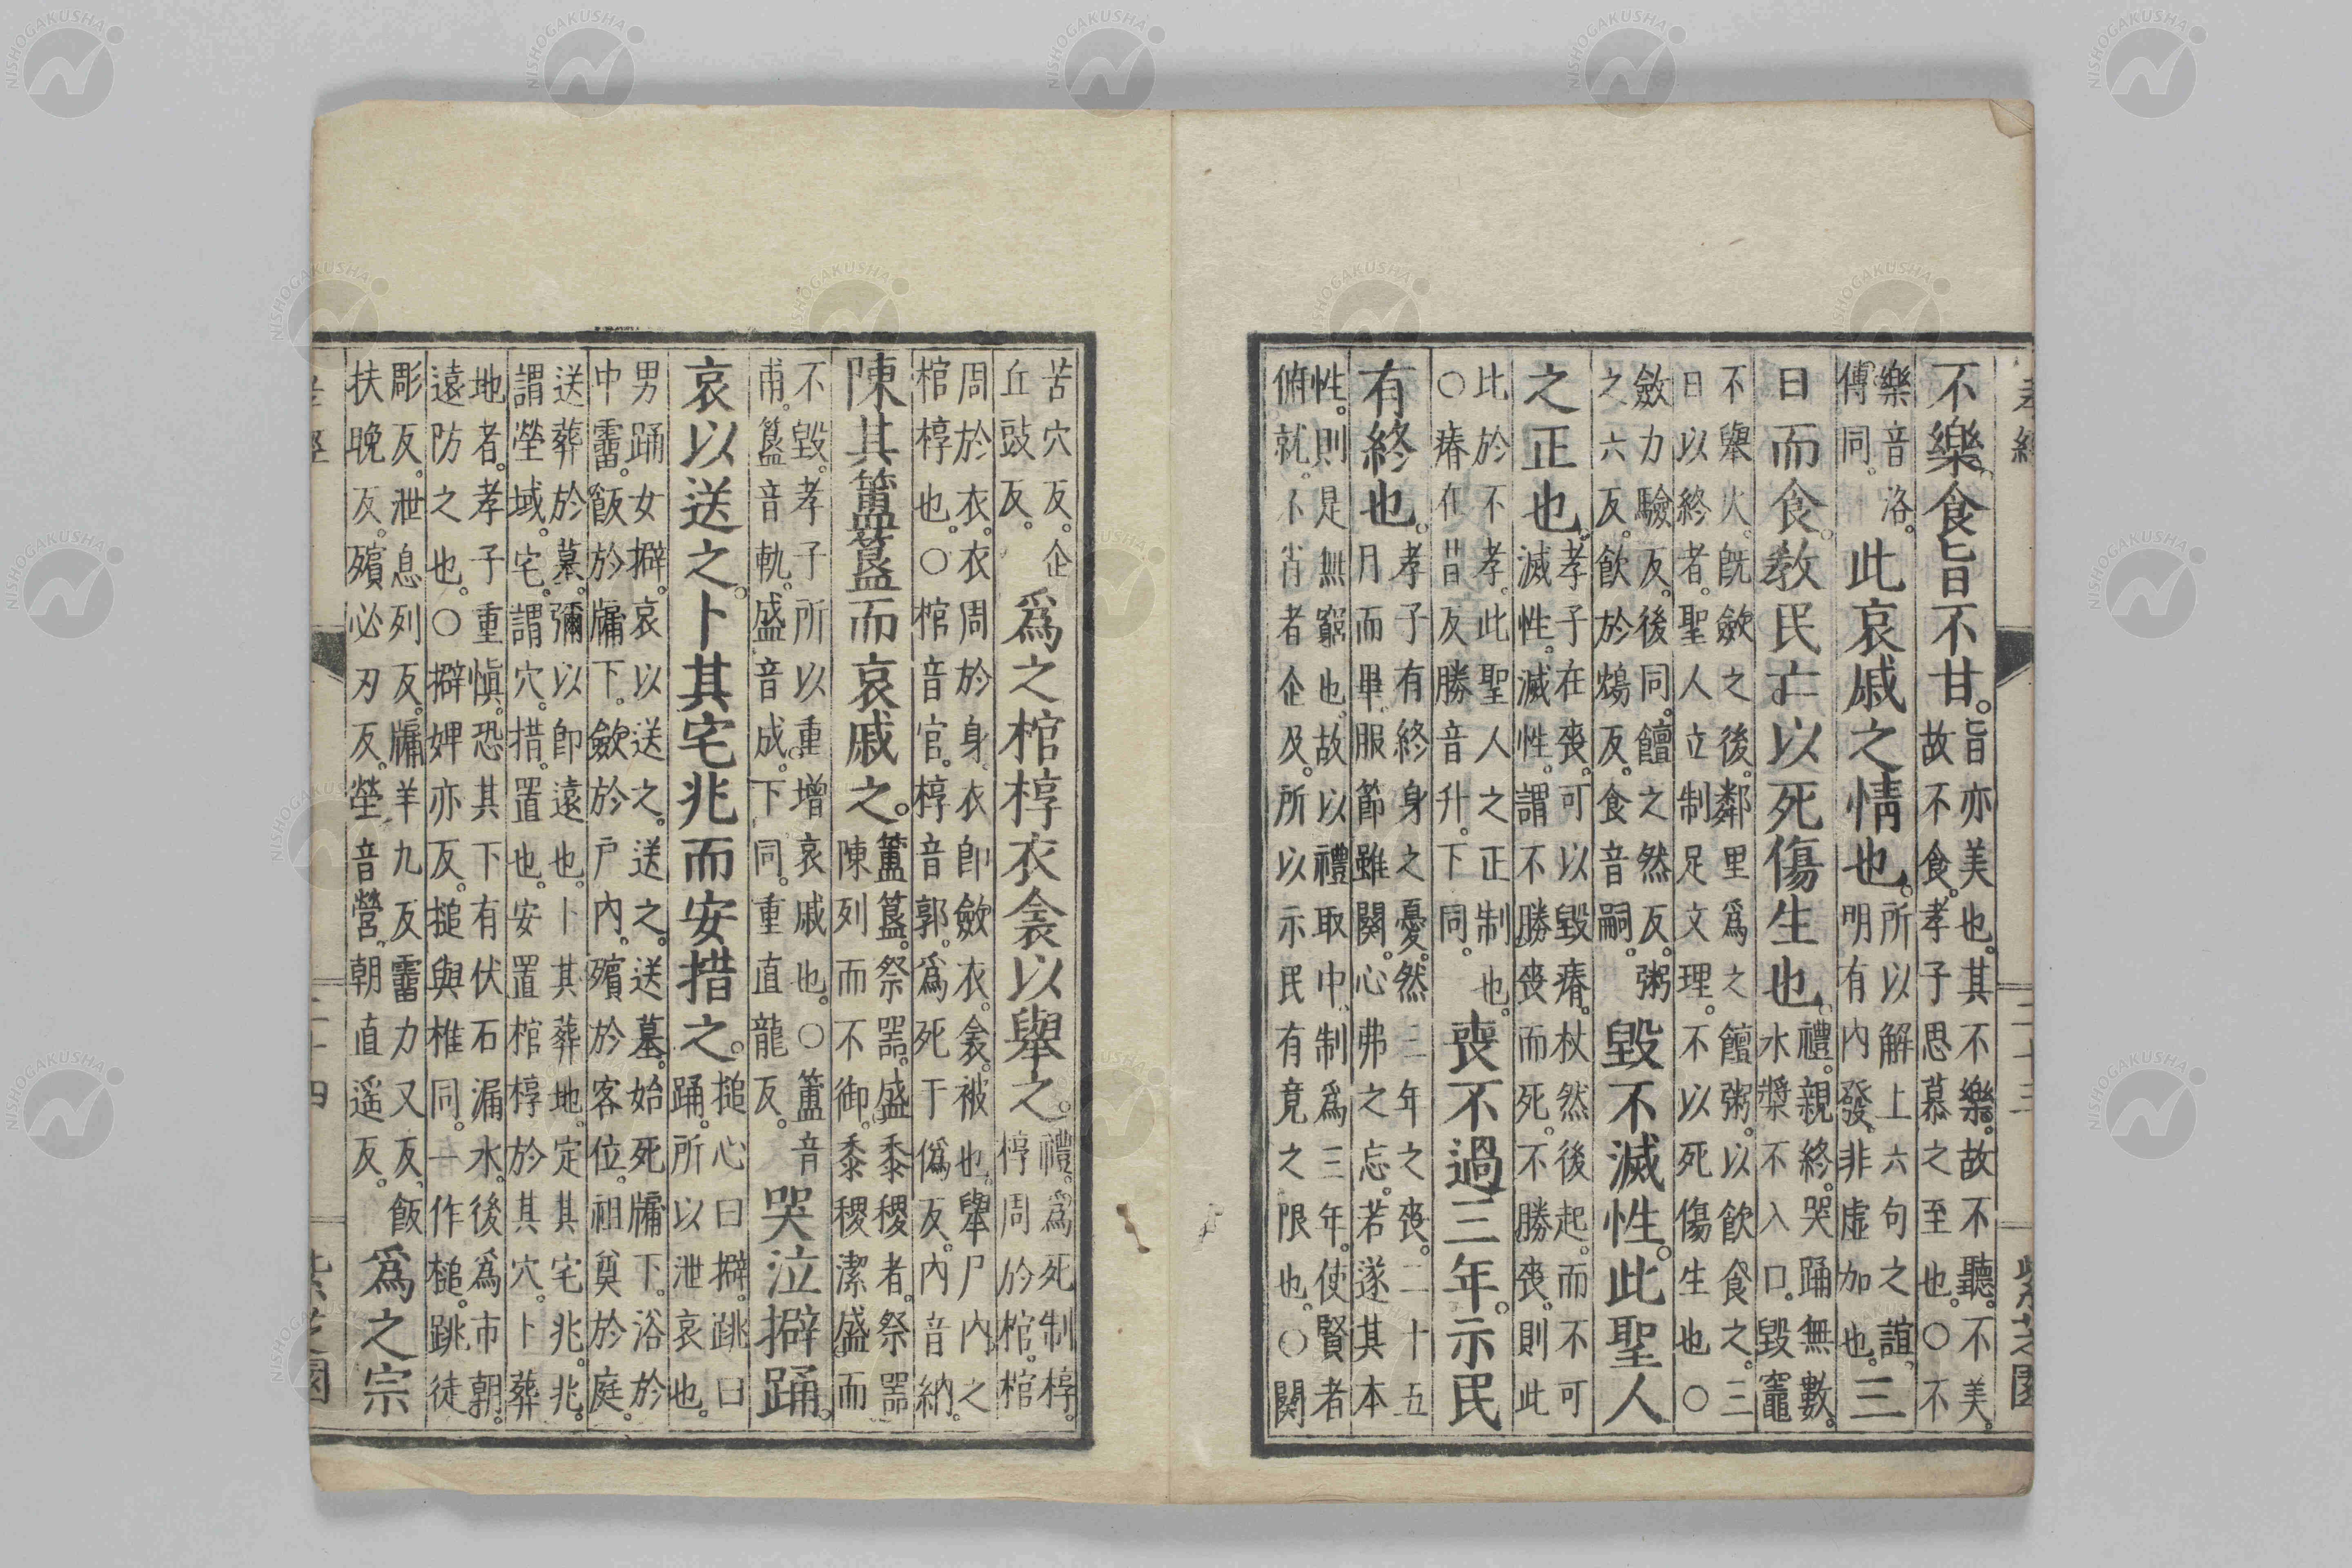 孝經 二十三 紫芝園
不樂。食旨不甘。旨亦美也。其不樂。故不聽。不美。
故不食。孝子思慕之至也。○不
樂音洛。
傳同。此哀戚之情也。所以解上六句之誼。
明有內發。非虛加也。三
日而食。教民亡以死傷生也。禮。親終。哭踊無數。
水漿不入口。毀竈
不舉火。旣斂之後。鄰里爲之饘粥。以飮食之。三
日以終者。聖人立制足文理。不以死傷生也○
斂力驗反。後同。饘之然反。粥
之六反。飮於煬反。食音嗣。毀不滅性。此聖人
之正也。孝子在喪。可以毀瘠。杖然後起。而不可
滅性。滅性。謂不勝喪而死。不勝喪。則此
此於不孝。此聖人之正制也。
○瘠在昔反勝音升。下同。喪不過三年。示民
有終也。孝子有終身之憂。然三年之喪。二十五
月而畢。服節雖闋。心弗之忘。若遂其本
性。則是無窮也。故以禮取中。制爲三年。使賢者
俯就。不肖者企及。所以示民有竟之限也。○闋
苦穴反。企
丘豉反。爲之棺椁衣衾以舉之。禮。爲死制椁。
椁周於棺。棺
周於衣。衣周於身。衣卽斂衣。衾。被也。舉尸內之
棺椁也。○棺音官。椁音郭。爲死于僞反。內音納。
陳其簠簋而哀戚之。簠簋。祭器。盛黍稷者。祭器
陳列而不御。黍稷潔盛。而
不毀。孝子所以重增哀戚也。○簠音
甫。簋音軌。盛音成。下同。重直龍反。哭泣擗踊。
哀以送之。卜其宅兆而安措之。搥心曰擗。跳曰
踊。所以泄哀也。
男踊女擗。哀以送之。送之。送墓。始死牖下。浴於
中霤。飯於牖下。斂於戶內。殯於客位。祖奠於庭。
送葬於墓。彌以卽遠也。卜其葬地。定其宅兆。兆。
謂塋域。宅。謂穴。措。置也。安置棺椁於其穴。卜葬
地者。孝子重愼。恐其下有伏石漏水。後爲市朝。
遠防之也。○擗婢亦反。搥與椎同。一作槌。跳徒
彫反。泄息列反。牖羊九反霤力又反。飯
扶晚反。殯必刃反。塋音營。朝直遥反。爲之宗
孝經 二十四 紫芝園
NISHOGAKUSHA